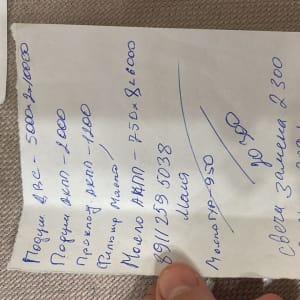 Подуш ДВС - 5000x2=10000
Подуш АКПП - 2000
Проклад АКПП - 1200
Фильтр Масло
Масло АКПП - 750 x 8 = 6000
8911 259 5038
Маслоту - 950
до 300
свечи замена 2 300